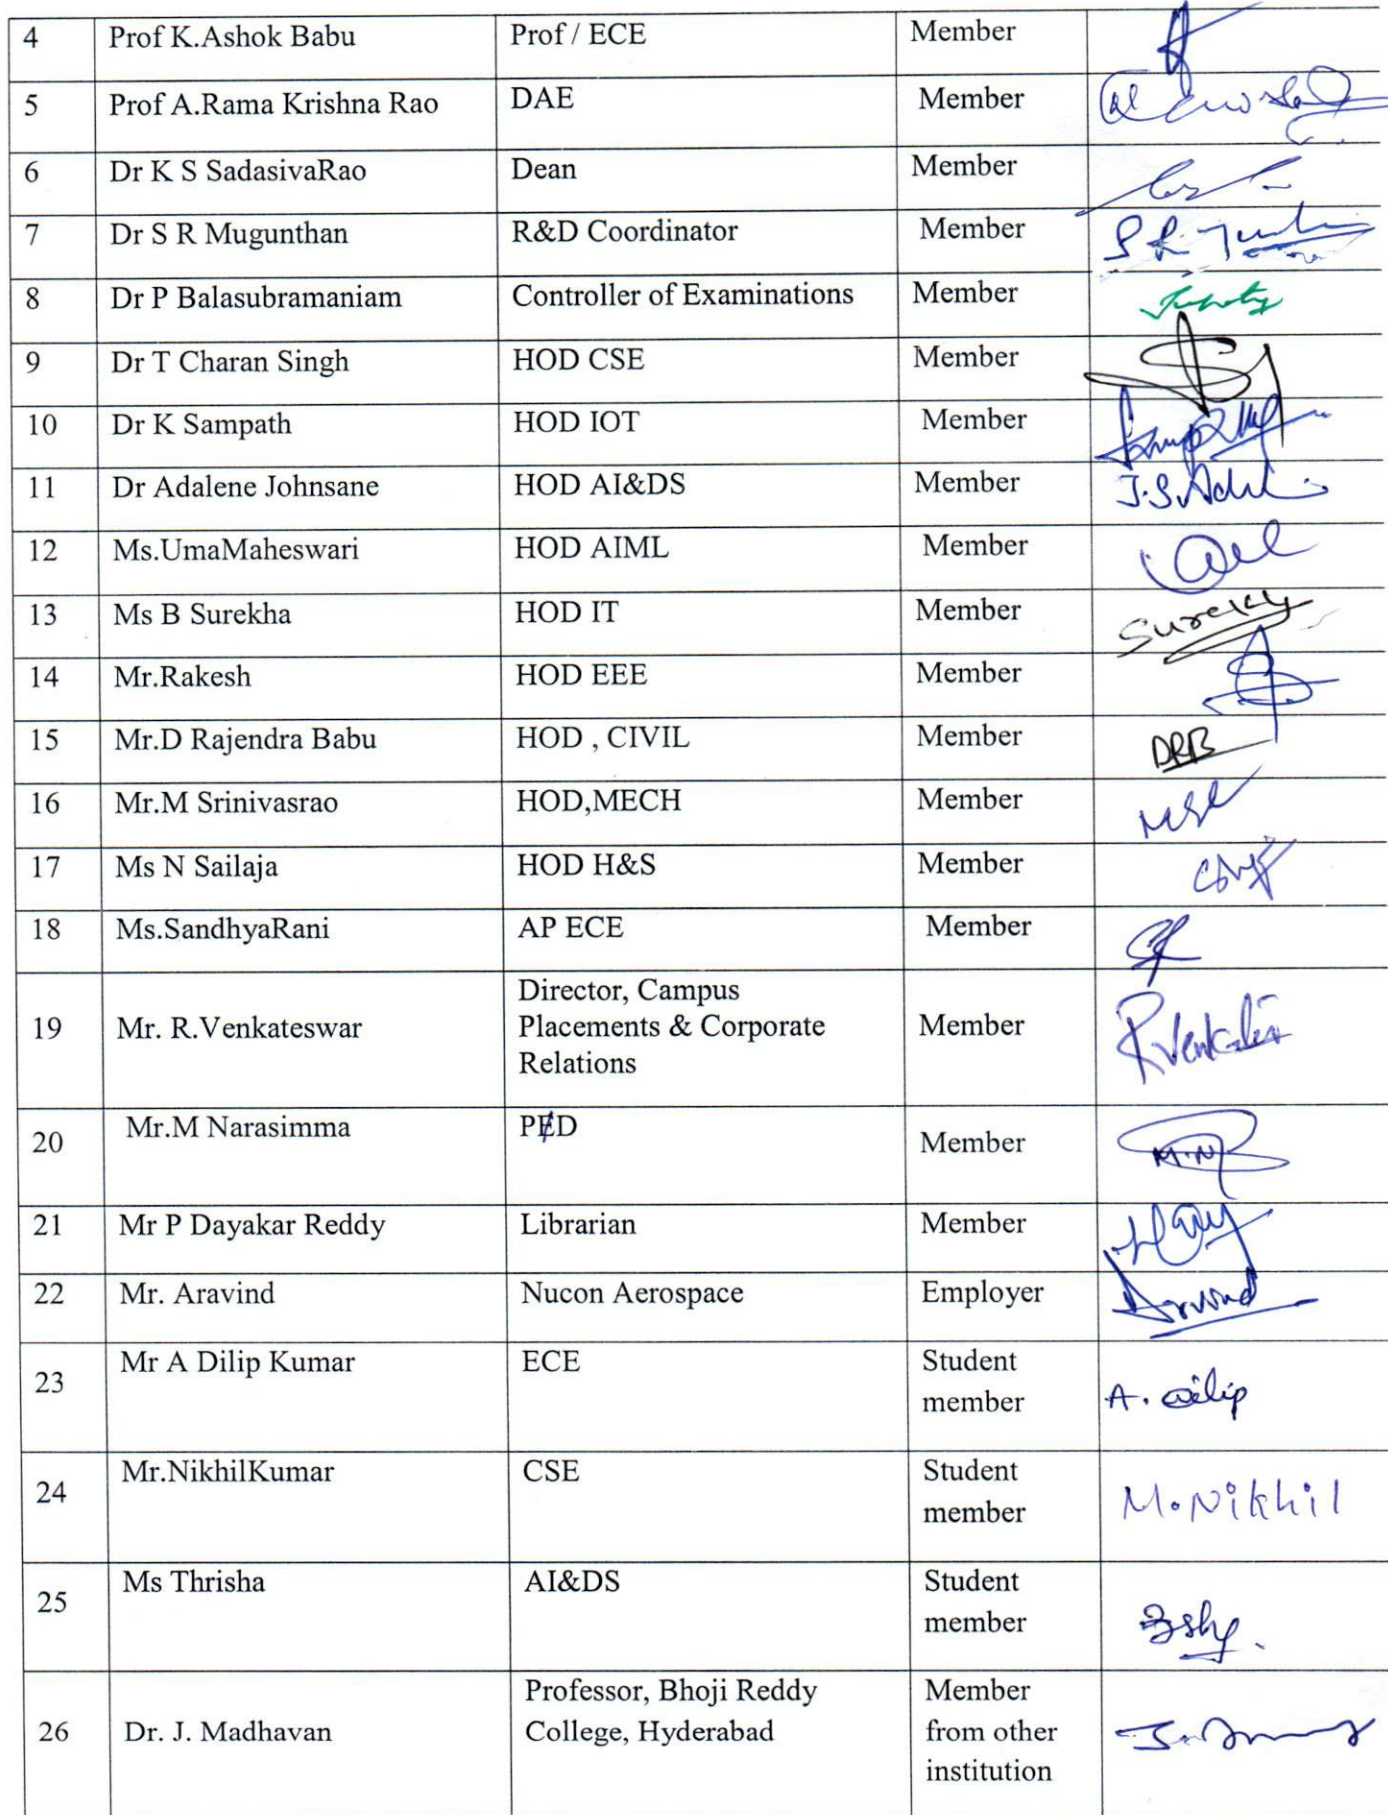 4 Prof K.Ashok Babu Prof / ECE Member
5 Prof A.Rama Krishna Rao DAE Member
6 Dr K S SadasivaRao Dean Member
7 Dr S R Mugunthan R&D Coordinator Member
8 Dr P Balasubramaniam Controller of Examinations Member
9 Dr T Charan Singh HOD CSE Member
10 Dr K Sampath HOD IOT Member
11 Dr Adalene Johnsane HOD AI&DS Member
12 Ms.UmaMaheswari HOD AIML Member
13 Ms B Surekha HOD IT Member
14 Mr.Rakesh HOD EEE Member
15 Mr.D Rajendra Babu HOD , CIVIL Member DRB
16 Mr.M Srinivasrao HOD,MECH Member
17 Ms N Sailaja HOD H&S Member
18 Ms.SandhyaRani AP ECE Member
Director, Campus
19 Mr. R.Venkateswar Placements & Corporate Member
Relations
20 Mr.M Narasimma PED Member
21 Mr P Dayakar Reddy Librarian Member
22 Mr. Aravind Nucon Aerospace Employer
Mr A Dilip Kumar ECE Student
23 member A. Dilip
Mr.NikhilKumar CSE Student
24 member M.Nikhil
Ms Thrisha AI&DS Student
25 member
Professor, Bhoji Reddy Member
26 Dr. J. Madhavan College, Hyderabad from other
institution